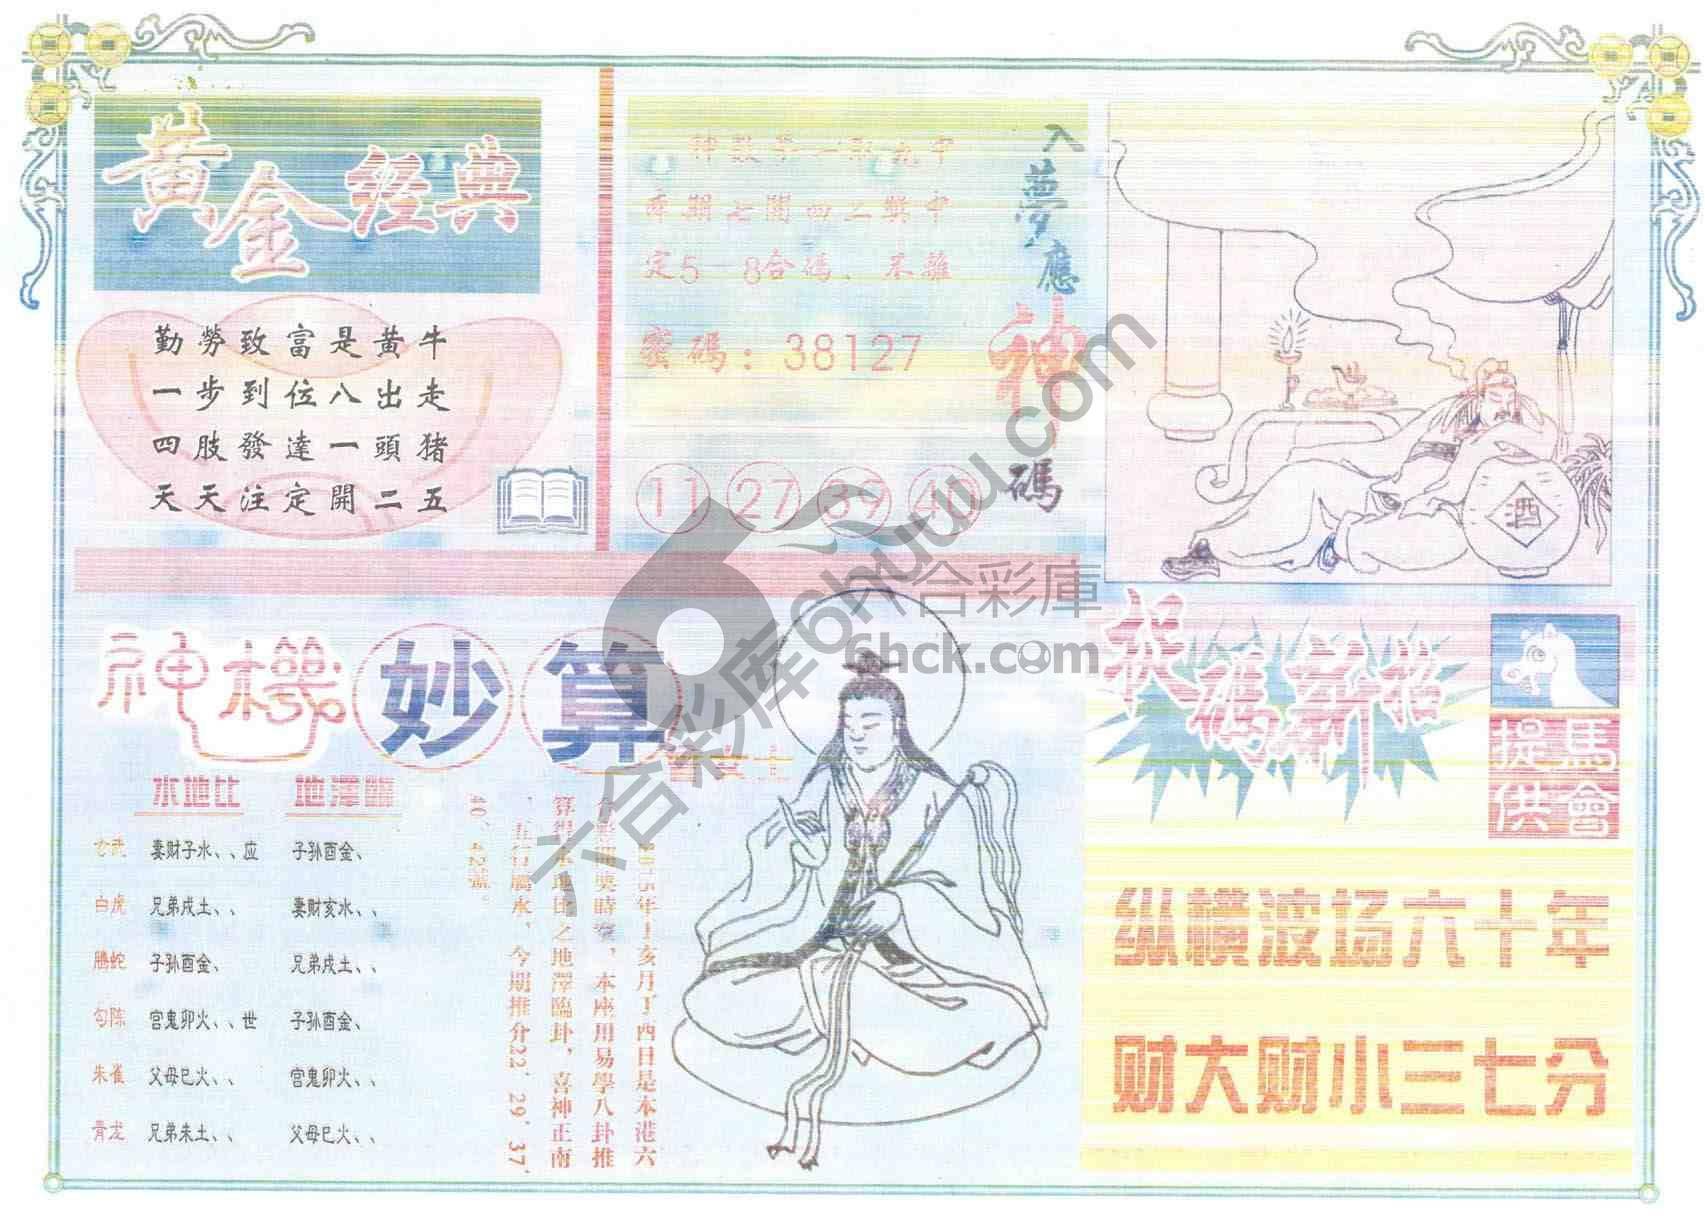 黃金經典
勤勞致富是黃牛
一步到位八出走
四肢發達一頭猪
天天注定開二五
入夢應神碼
本期七開四二點中
定5 8合碼、不離
密碼：38127
11 27 39 40
酒
神機妙算
水地比 地澤臨
玄武 妻财子水、、应 子孙酉金、
白虎 兄弟戌土、、 妻财亥水、、
騰蛇 子孙酉金、 兄弟戌土、、
勾陈 官鬼卯火、、世 子孙酉金、
朱雀 父母巳火、、 官鬼卯火、、
青龙 兄弟未土、、 父母巳火、、
年 亥月丁酉日是本港六
合彩 獎時 ，本座用易學八卦推
算得水地比之地澤臨卦，喜神正南
，五行屬水，今期推介22、29、37、
40、42號。
捉碼新招
馬會
提供
纵横波场六十年
财大财小三七分
六合彩库6huuu.com
六合彩庫
6hck.com